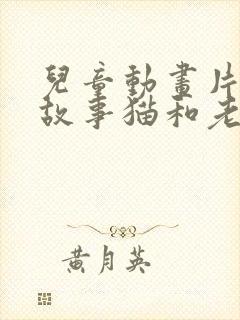 兒童動畫片
故事猫和老
黄月英